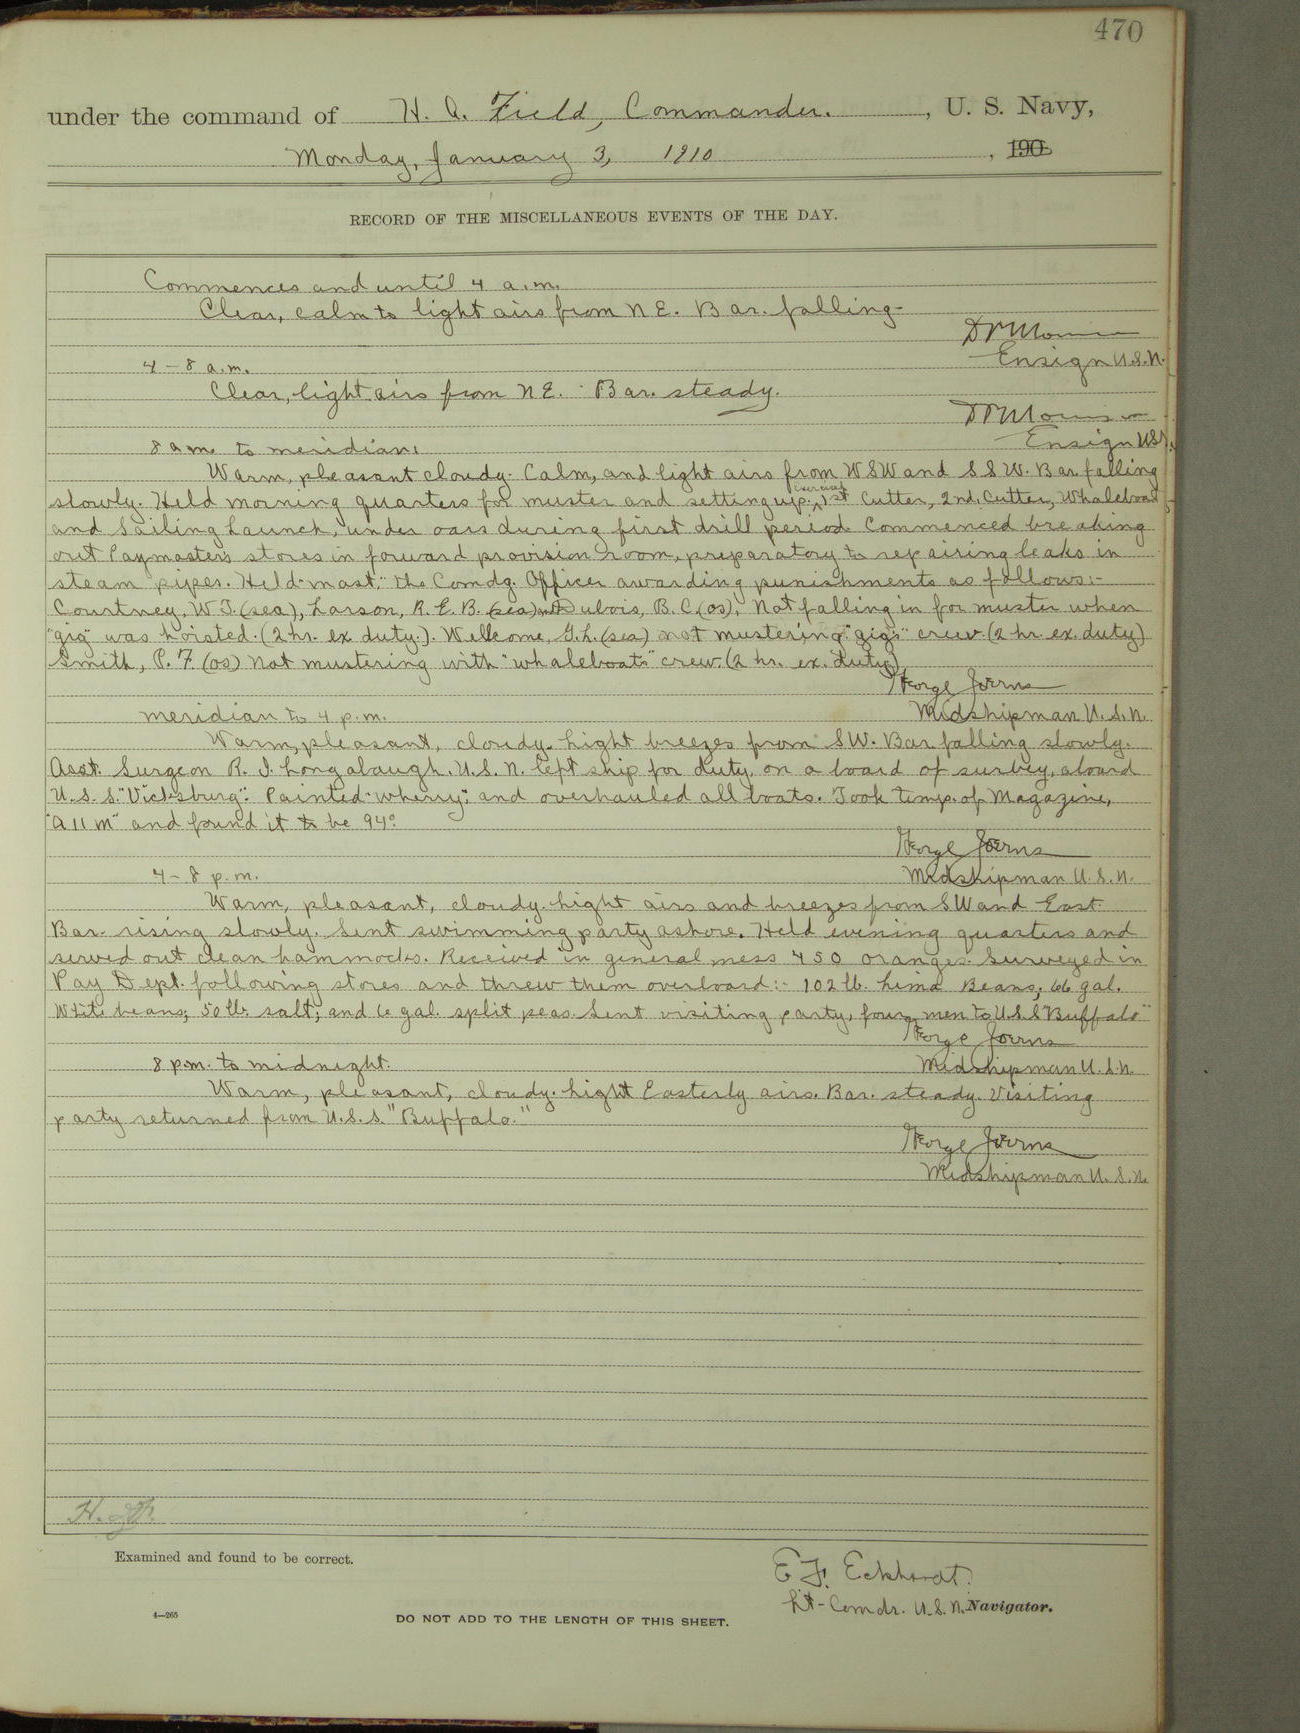 470
under the command of H. A. Field, Commander. , U. S. Navy,
Monday, January 3, 1910 , 190
RECORD OF THE MISCELLANEOUS EVENTS OF THE DAY.
Commences and until 4 a.m.
Clear, calm to light airs from N E. Bar. falling-
Ensign U.S.N.
4 - 8 a.m.
Clear, light airs from N E. Bar. steady.
Ensign USN.
8 a.m. to meridian:
Warm, pleasant cloudy. Calm, and light airs from WSW and S S W. Bar. falling
slowly. Held morning quarters for muster and setting up. exercise 1st Cutter, 2nd. Cutter, Whaleboat
and Sailing Launch, under oars during first drill period. Commenced breaking
out Paymasters stores in forward provision room, preparatory to repairing leaks in
steam pipes. Held "mast." The Comdg. Officer awarding punishments as follows:-
Courtney, W. J. (sea), Larson, R. E. B. (sea) and Dubois, B. C. (os), Not falling in for muster when
"gig" was hoisted. (2 hr. ex duty.). Wellcome, G. L. (sea) not mustering "gig's" crew (2 hr. ex. duty)
Smith, P. F. (os) Not mustering with "whaleboats" crew. (2 hr. ex. duty)
George Joerns
Midshipman U. S. N.
meridian to 4 p.m.
Warm, pleasant, cloudy. Light breezes from SW. Bar. falling slowly.
Asst. Surgeon R. I. Longabaugh. U. S. N. left ship for duty, on a board of survey, aboard
U. S. S. "Vicksburg". Painted "wherry"; and overhauled all boats. Took temp. of Magazine,
"A 11 M" and found it to be 94°
George Joerns
Midshipman U. S. N.
4 - 8 p.m.
Warm, pleasant, cloudy. Light airs and breezes from SW and East.
Bar. rising slowly. Sent swimming party ashore. Held evening quarters and
served out clean hammocks. Received in general mess 450 oranges. Surveyed in
Pay Dept. following stores and threw them overboard:- 102 lb. Lima Beans; 66 gal.
White beans; 50 lb. salt; and 6 gal. split peas. Sent visiting party, four men to U.S.S "Buffalo"
George Joerns
Midshipman U. S. N.
8 p.m. to midnight.
Warm, pleasant, cloudy. Light Easterly airs. Bar. steady. Visiting
party returned from U. S. S. "Buffalo."
George Joerns
Midshipman U. S. N.
Examined and found to be correct.
E. F. Eckhardt.
Lt-Comdr. U. S. N. Navigator.
4—265
DO NOT ADD TO THE LENGTH OF THIS SHEET.